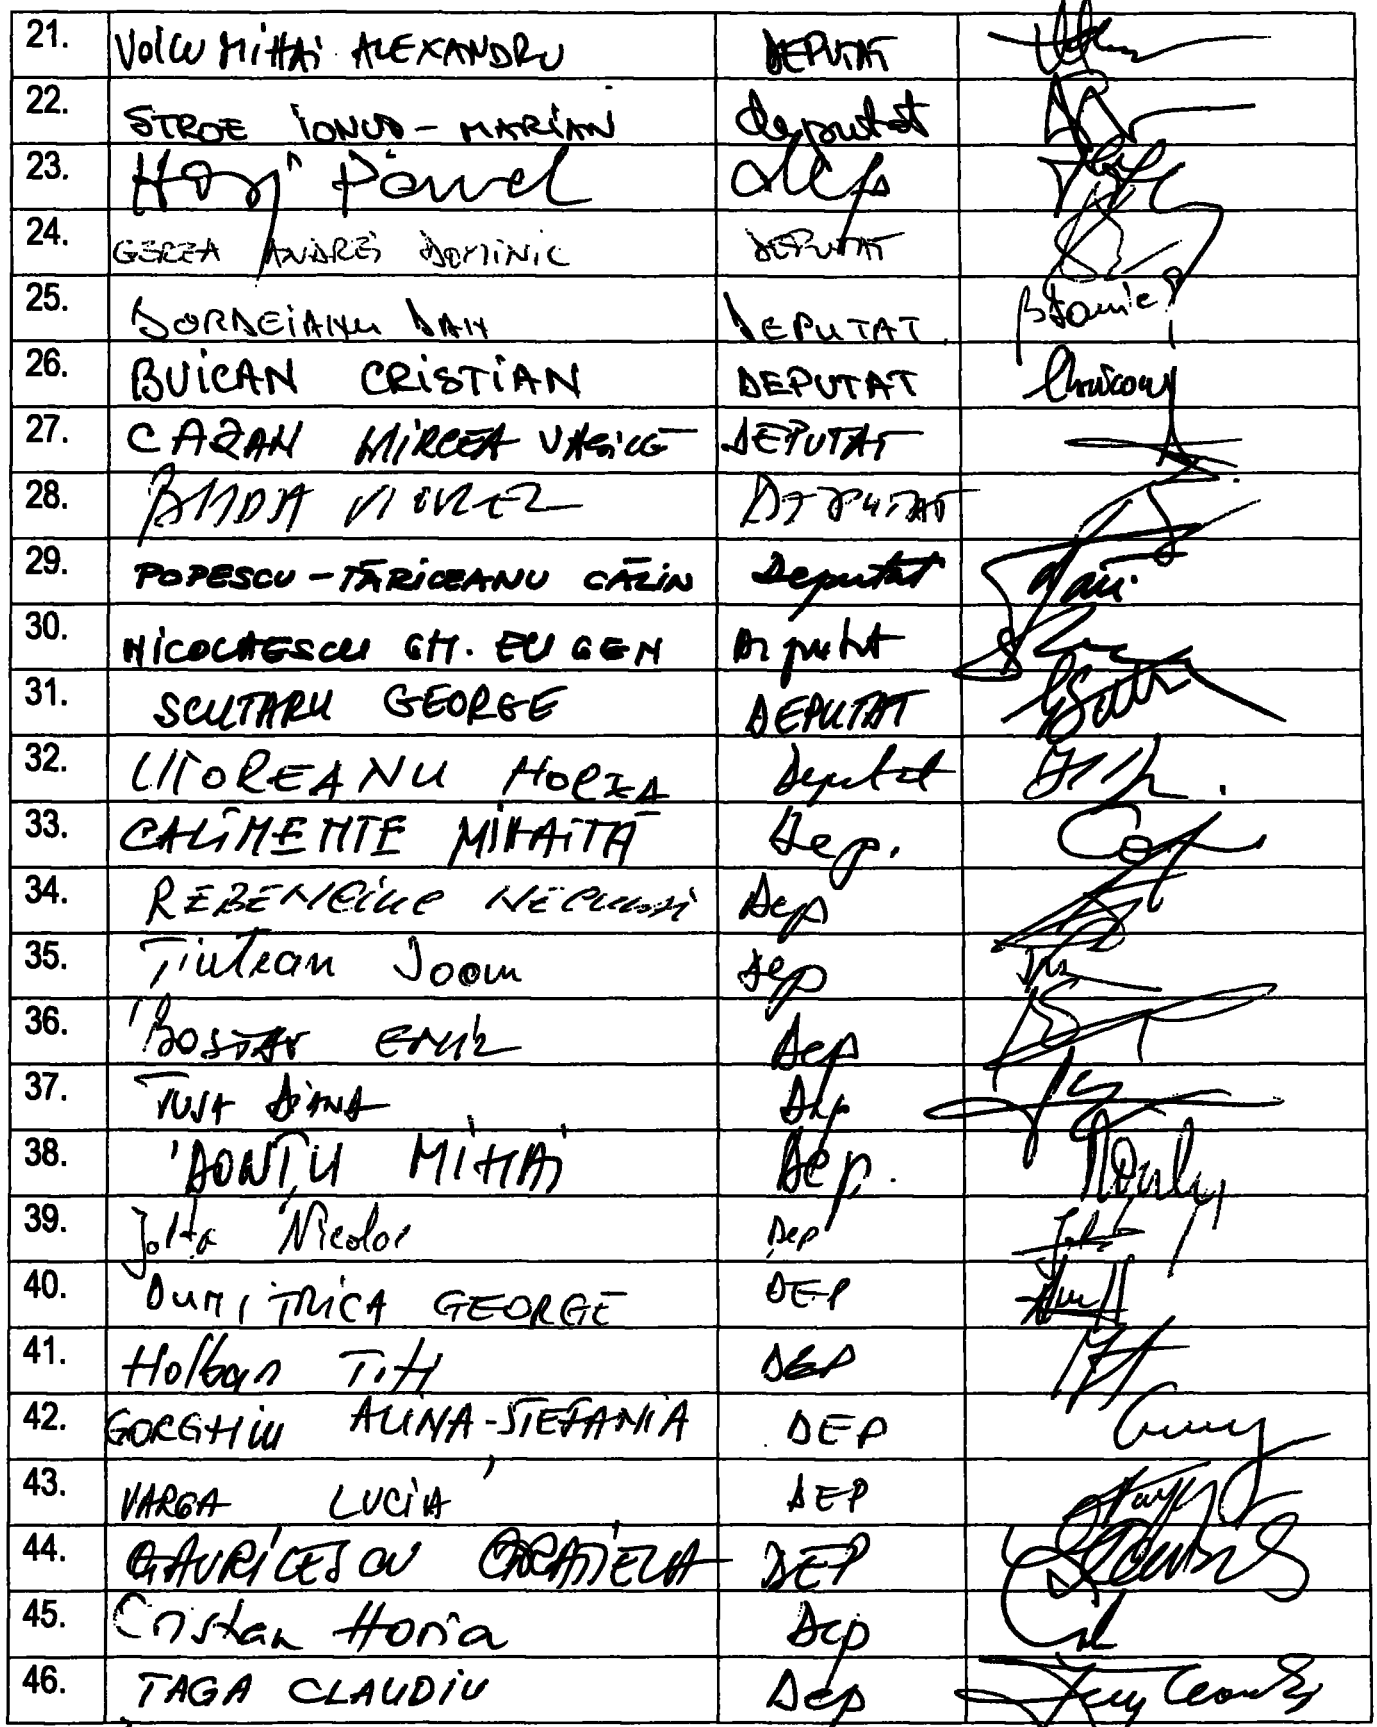 21. VOICU MIHAI ALEXANDRU DEPUTAT
22. STROE IONUȚ-MARIAN deputat
23. Horj Pavel dep
24. GEREA ANDREI DOMINIC DEPUTAT
25. BORDEIANU DAN DEPUTAT
26. BUICAN CRISTIAN DEPUTAT
27. CAZAN MIRCEA VASILE DEPUTAT
28. BUDA VIOREL DEPUTAT
29. POPESCU-TĂRICEANU CĂLIN Deputat
30. NICOLAESCU GH. EUGEN Deputat
31. SCUTARU GEORGE DEPUTAT
32. UIOREANU HOREA Deputat
33. CALIMENTE MIHĂIȚĂ Dep.
34. REBENCIUC Dep
35. Tiutean Ioan dep
36. BOSTAN EMIL Dep
37. TUȘA DIANA Dep
38. DONȚU MIHAI Dep.
39. Jolța Nicolae Dep
40. DUMITRICA GEORGE DEP
41. Holban Titi DEP
42. GORGHIU ALINA-ȘTEFANIA DEP
43. VARGA LUCIA DEP
44. GAVRILESCU GRAȚIELA DEP
45. Cristian Horia Dep
46. TAGA CLAUDIU Dep